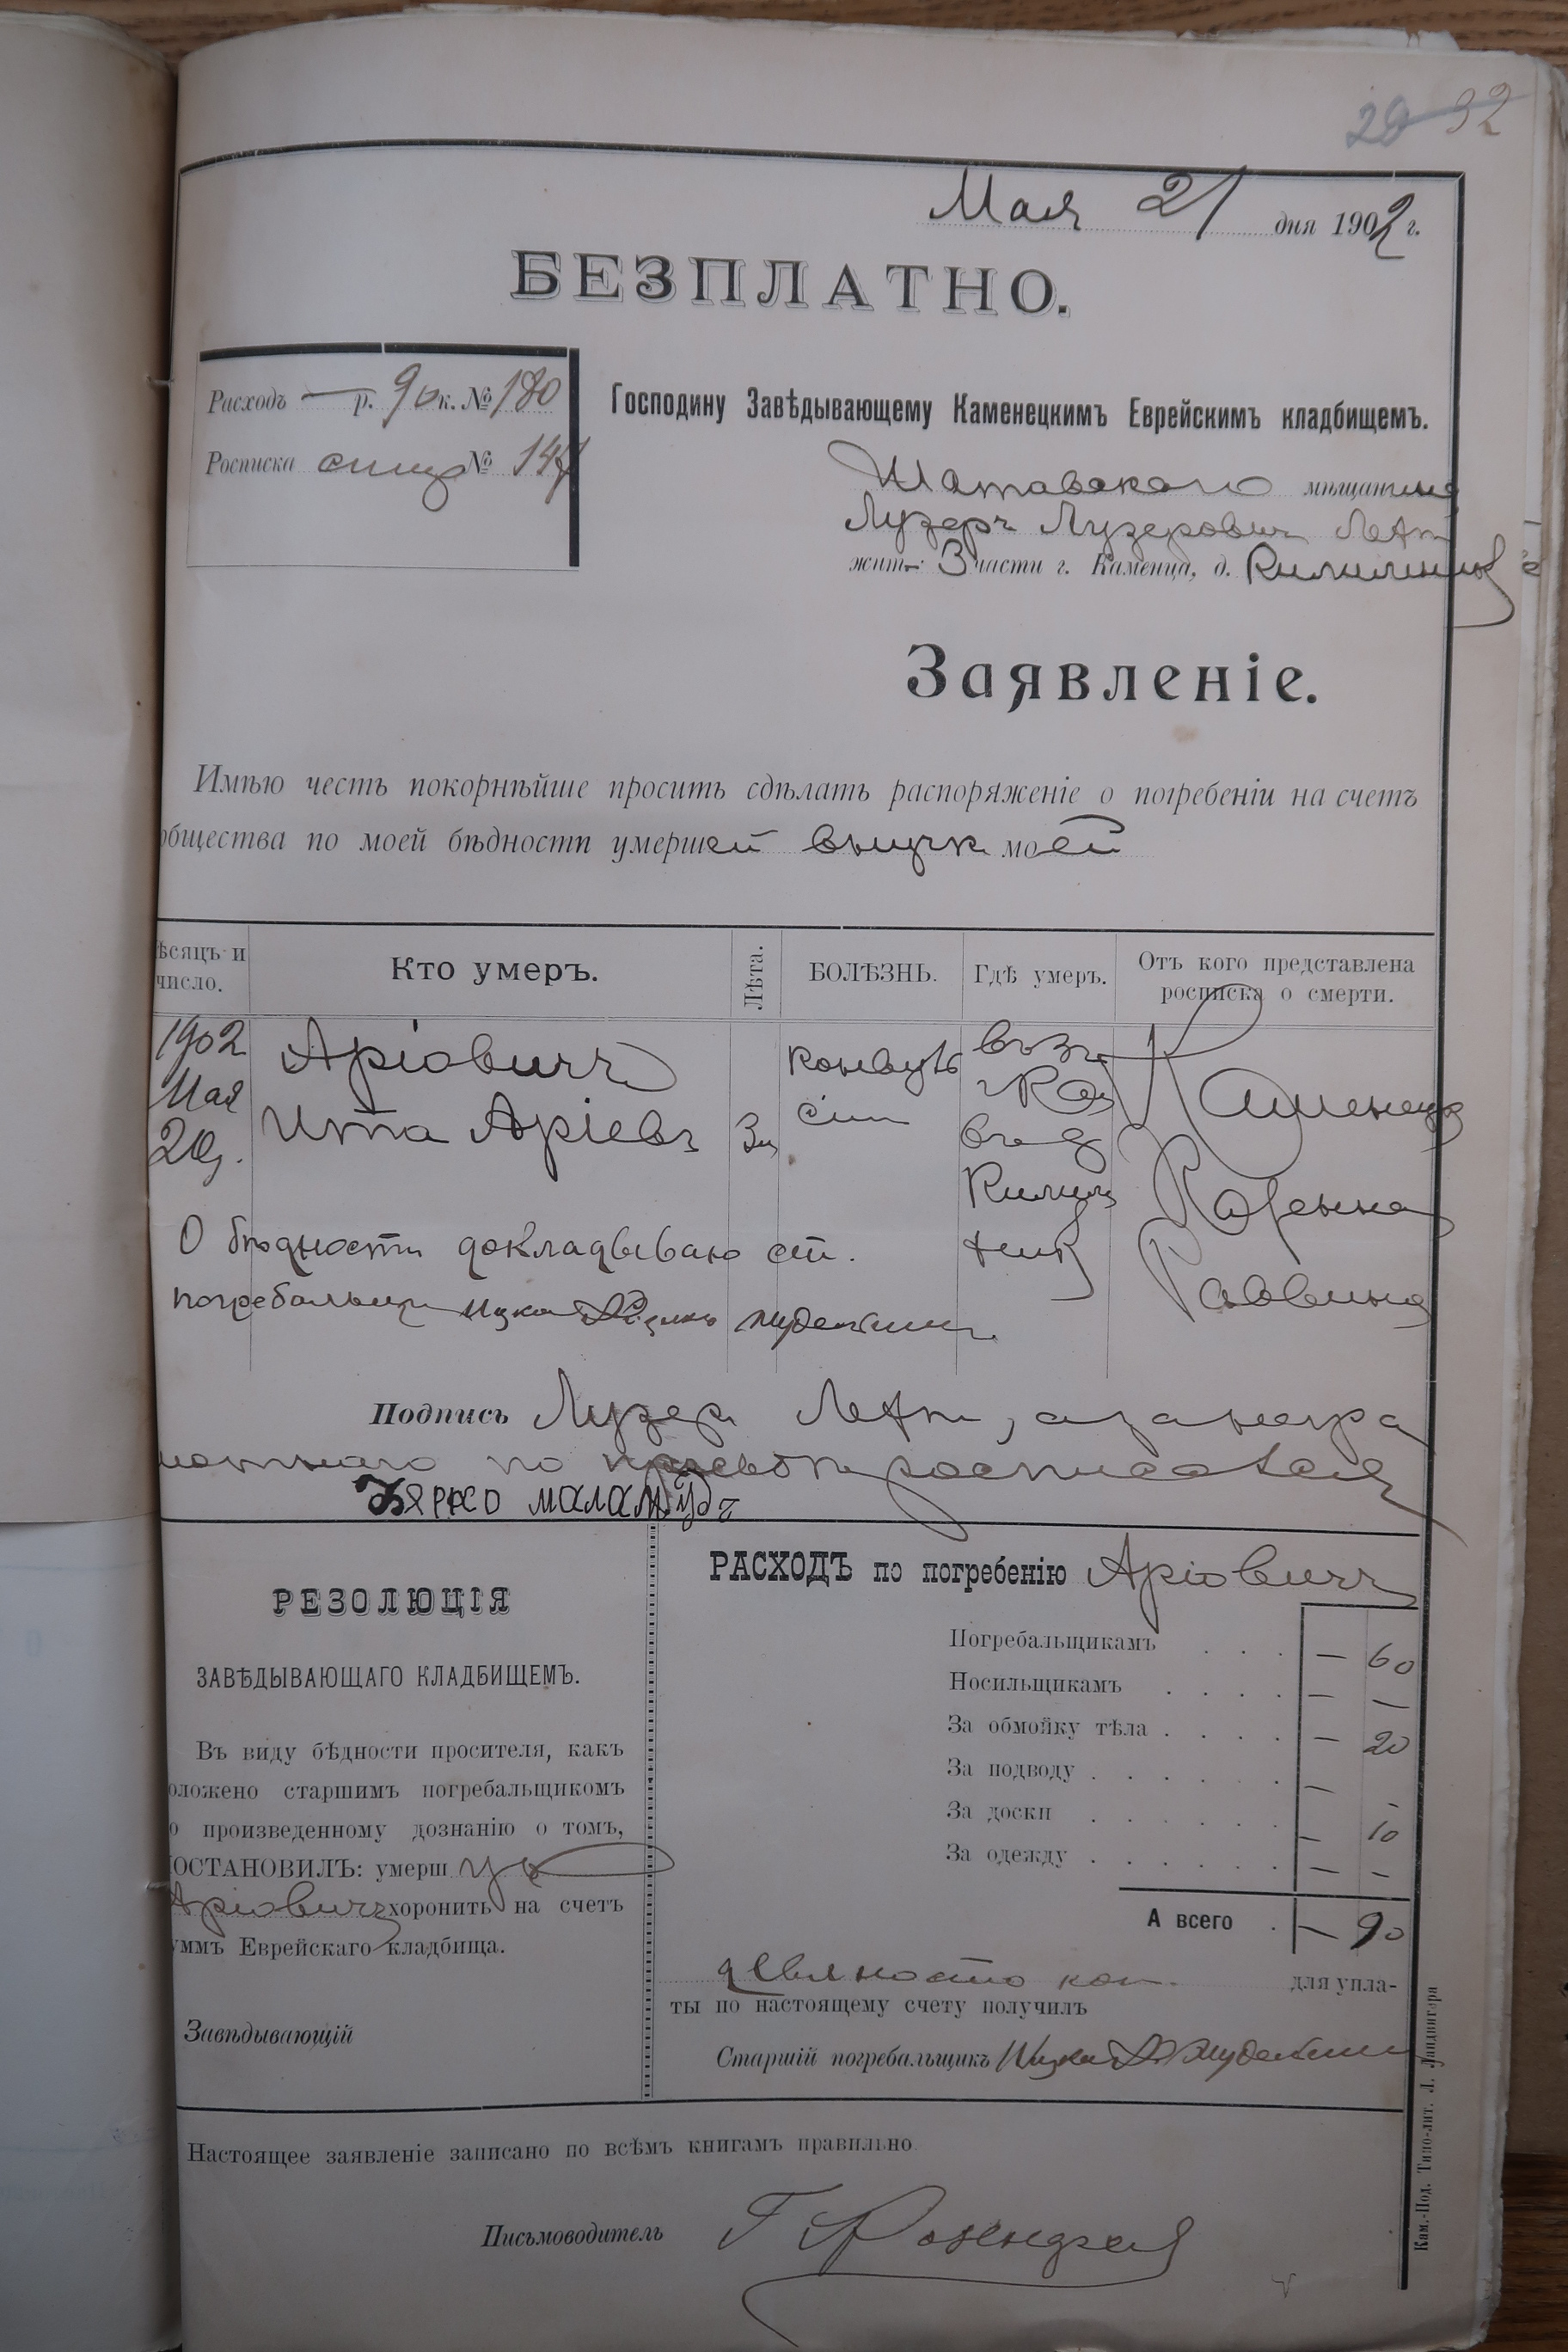 29 32
Мая 21 дня 1902 г.
БЕЗПЛАТНО.
Расходъ — р. 90 к. № 180
Росписка № 147
Господину Завѣдывающему Каменецкимъ Еврейскимъ кладбищемъ.
Шатавскаго мѣщанина
Лузеръ Лузеровичъ
жит. 3 части г. Каменца, д.
Заявленіе.
Имѣю честь покорнѣйше просить сдѣлать распоряженіе о погребеніи на счетъ
общества по моей бѣдности умершей внучк моей
ѣсяцъ и число.
Кто умеръ.
Лѣта.
БОЛѢЗНЬ.
Гдѣ умеръ.
Отъ кого представлена росписка о смерти.
1902 Аріовичъ въ 3 ч
Мая г Кам Каменец
20 Ита Аріевъ въ д
Казенна
О бѣдности докладываю ст. Раввина
погребальщ Ицко
Подпись Лузеръ, а за негра
мотнаго по просьбѣ росписался
маламудъ
РЕЗОЛЮЦІЯ
ЗАВѢДЫВАЮЩАГО КЛАДБИЩЕМЪ.
Въ виду бѣдности просителя, какъ
оложено старшимъ погребальщикомъ
о произведенному дознанію о томъ,
ОСТАНОВИЛЪ: умерш ую
Аріовичъ хоронить на счетъ
уммъ Еврейскаго кладбища.
Завѣдывающій
РАСХОДЪ по погребенію Аріовичъ
Погребальщикамъ . . . — 60
Носильщикамъ . . . . — —
За обмойку тѣла . . . . — 20
За подводу . . . . . . — -
За доски . . . . . . — 10
За одежду . . . . . . — -
А всего . — 90
девяносто коп. для упла-
ты по настоящему счету получилъ
Старшій погребальщикъ Ицко
Настоящее заявленіе записано по всѣмъ книгамъ правильно
Письмоводитель
Кам.-Под. Типо-лит. Л. Ландвигера